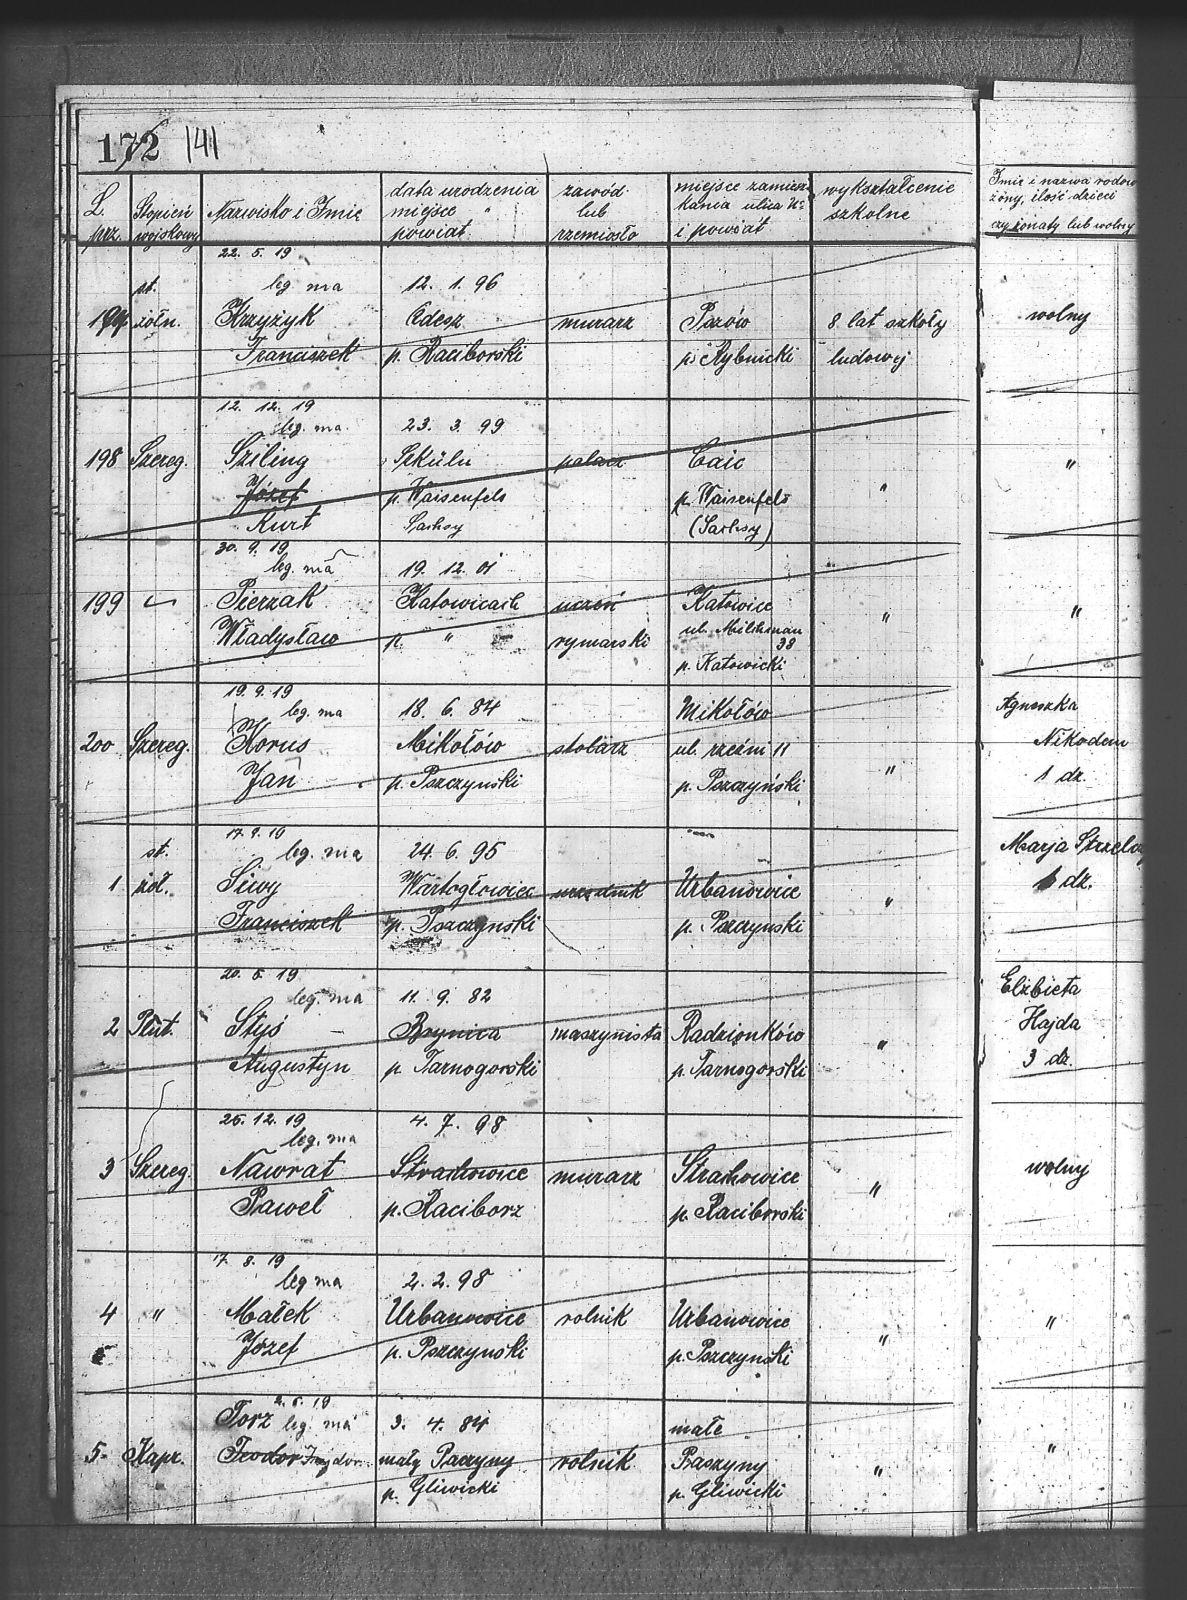 172 141
L. prz. Stopień wojskowy Nazwisko i Imię data urodzenia miejsce powiat zawód lub rzemiosło miejsce zamieszkania ulica № i powiat wykształcenie szkolne Imię i nazwa rodow żony, ilość dzieci czy żonaty lub wolny
22. 5. 19
st. leg ma 12. 1. 96
żołn. Krzyżyk murarz Pszów 8. lat szkoły wolny
Franciszek p. Raciborski p. Rybnicki ludowej
12. 12. 19
leg. ma 23. 3. 99
198 Szereg. Sziling Caic "
Józef p. Waisenfels p. Waisenfels "
Kurt Sachsy (Sachsy)
30. 9. 19
leg. ma 19. 12. 01
199 Pierzak Katowicach uczeń Katowice "
Władysław p. " rymarski ul. 38 "
p. Katowicki
19. 9. 19
leg. ma 18. 6. 84 Mikołów Agneszka
200 Szereg. Korus Mikołów stolarz ul. 11 Nikodem
Jan p. Pszczynski p. Pszczyński " 1 dz.
17. 9. 19
st. leg. ma 24. 6. 95 Marja
1 żoł. Siwy urzędnik Urbanowice " 1 dz.
Franciszek p. Pszczynski p. Pszczynski
20. 5. 19 Elżbieta
leg. ma 11. 9. 82 Hajda
2 Plut. Styś Brynica maszynista Radzionków " 3 dz.
Augustyn p. Tarnogorski p. Tarnogorski
leg. ma 4. 7. 98
3 Szereg. Nawrat Strachowice murarz Strachowice wolny
Paweł p. Raciborz p. Raciborski "
17. 8. 19
leg ma 2. 2. 98
4 " Małek Urbanowice rolnik Urbanowice "
Józef p. Pszczynski p. Pszczyński "
Torz leg. ma 3. 4. 84 małe
5. Kapr. Teodor mały Paczyny rolnik Paszyny " "
p. Gliwicki p. Gliwicki